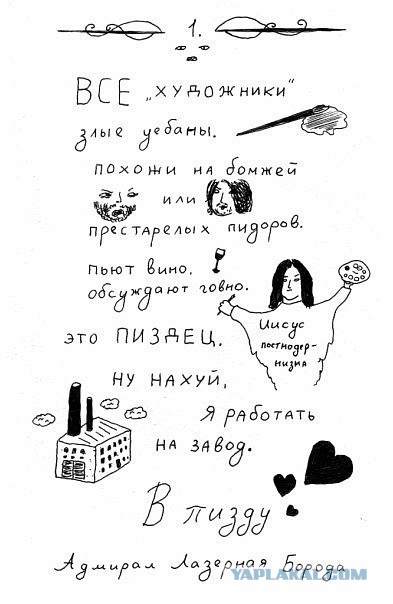 1.
ВСЕ „ХУДОЖНИКИ“
злые уебаны.
похожи на бомжей
или
престарелых пидоров.
пьют вино,
обсуждают говно.
Иисус
постмодер-
низма
это ПИЗДЕЦ.
НУ НАХУЙ,
Я РАБОТАТЬ
НА ЗАВОД.
В пизду
Адмирал Лазерная Борода
YAPLAKAL.COM